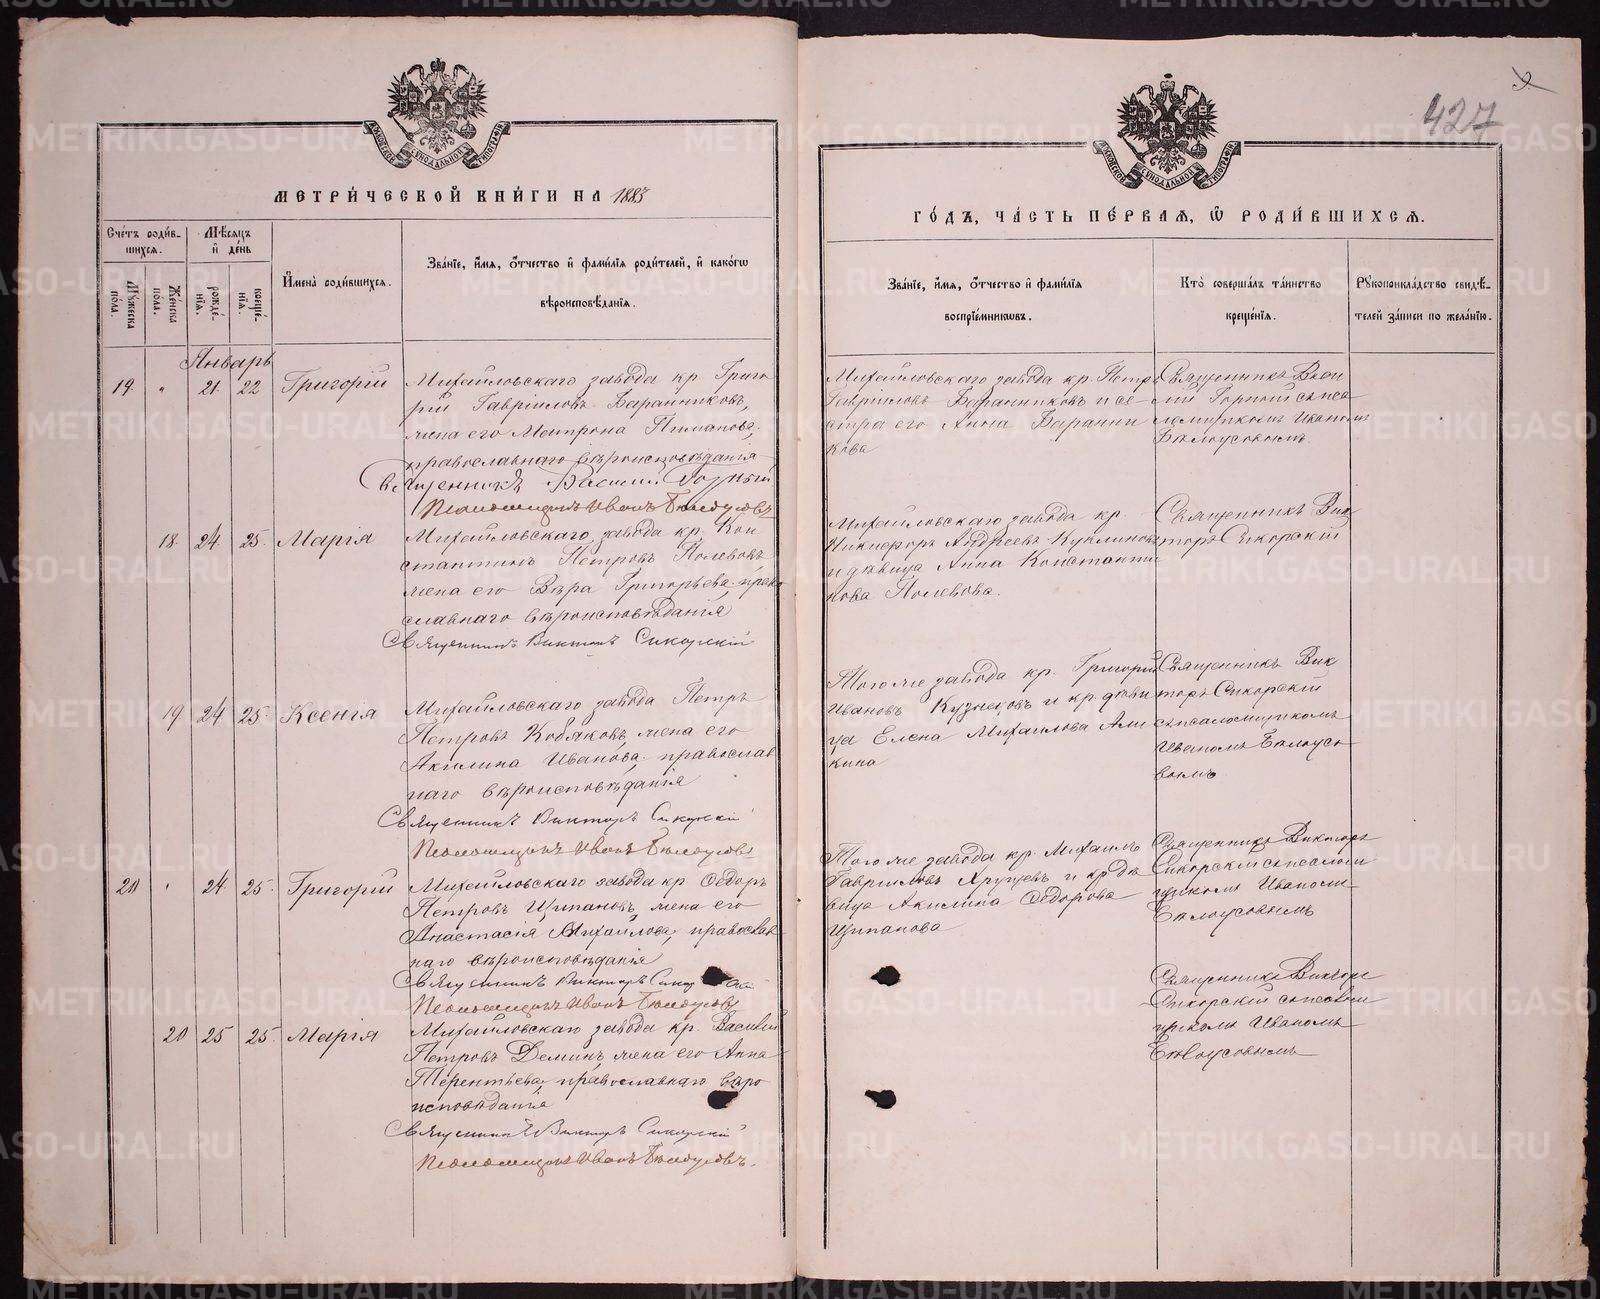 МЕТРИЧЕСКОЙ КНИГИ НА 1883
Счетъ родив-
шихся.
Мѣсяцъ
и день
Мужеска
пола.
Женска
пола.
рожде-
нія.
креще-
нія.
Имена родившихся.
Званіе, имя, отчество и фамилія родителей, и какогѡ
вѣроисповѣданія.
Январь
19. „ 21. 22 Григорій
Михайловскаго завода кр. Григо
рій Гавріиловъ Баранниковъ,
жена его Матрона
православнаго вѣроисповѣданія
Священникъ Василій Горный
Псаломщикъ Иванъ Бѣлоусовъ
18. 24. 25. Марія
Михайловскаго завода кр. Кон
стантинъ Петровъ Полевовъ
жена его Вѣра Григорьева, право
славнаго вѣроисповѣданія
Священникъ Викторъ Сикорскій
19. 24 25. Ксенія
Михайловскаго завода Петръ
Петровъ Кобяковъ, жена его
Акилина Иванова, православ
наго вѣроисповѣданія
Священникъ Викторъ Сикорскій
Псаломщикъ Иванъ Бѣлоусовъ
20 24. 25. Григорій
Михайловскаго завода кр. Ѳедоръ
Петровъ Щипановъ, жена его
Анастасія Михайлова, православ
наго вѣроисповѣданія
Священникъ Викторъ
Псаломщикъ Иванъ Бѣлоусовъ
20 25 25. Марія
Михайловскаго завода кр. Василій
Петровъ Деминъ, жена его Анна
Терентьева, православнаго вѣро
исповѣданія
Священникъ Викторъ Сикорскій
Псаломщикъ Иванъ Бѣлоусовъ.
427
ГОДЪ, ЧАСТЬ ПЕРВАЯ, Ѡ РОДИВШИХСЯ.
Званіе, имя, отчество и фамилія
воспріемниковъ.
Кто совершалъ таинство
крещенія.
Рукоприкладство свидѣ-
телей записи по желанію.
Михайловскаго завода кр. Петръ
Гавріиловъ Баранниковъ и се-
стра его Анна Баранни
кова
Священникъ Васи
лій Горной съ пса
ломщикомъ Иваномъ
Бѣлоусовымъ
Михайловскаго завода кр.
Никифоръ Андреевъ Куклиновъ
и дѣвица Анна Константи
нова Полевова.
Священникъ Вик
торъ Сикорскій
Тогоже завода кр. Григорій
Ивановъ Кузнецовъ и кр. дѣви
ца Елена Михаилова Али
кина
Священникъ Вик
торъ Сикорскій
съ псаломщикомъ
Иваномъ Бѣлоусо
вымъ
Тогоже завода кр. Михаилъ
Гавріиловъ Хрущевъ и кр. дѣ
вица Акилина Ѳедорова
Щипанова
Священникъ Викторъ
Сикорскій съ псалом
щикомъ Иваномъ
Бѣлоусовымъ
Священникъ Викторъ
Сикорскій съ псалом
щикомъ Иваномъ
Бѣлоусовымъ